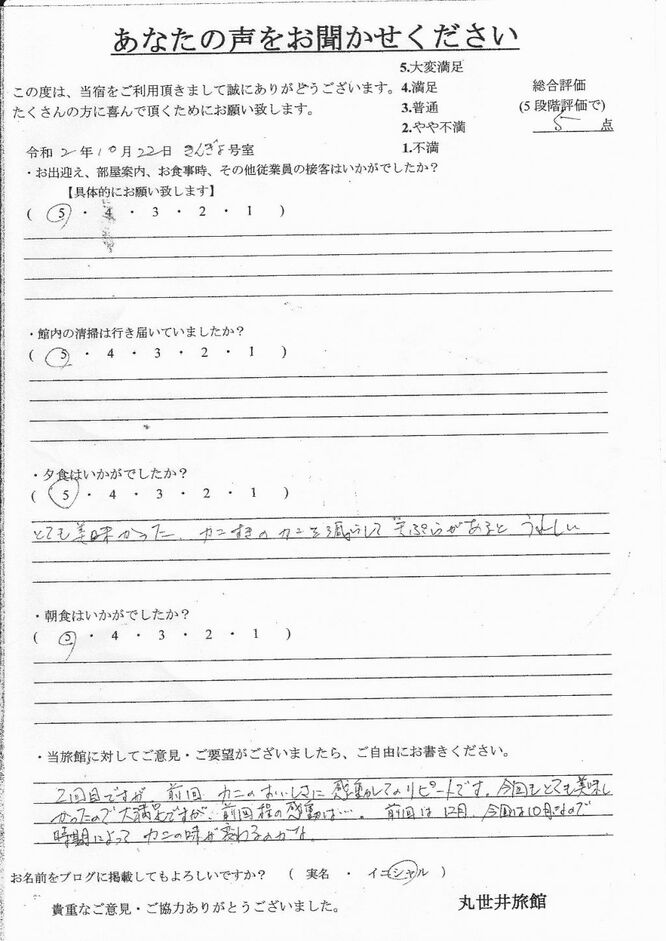 あなたの声をお聞かせください
この度は、当宿をご利用頂きまして誠にありがとうございます。
たくさんの方に喜んで頂くためにお願い致します。
5.大変満足
4.満足
3.普通
2.やや不満
1.不満
総合評価
(5段階評価で)
5 点
令和 2 年 10 月 22 日 きんぎょ号室
・お出迎え、部屋案内、お食事時、その他従業員の接客はいかがでしたか?
【具体的にお願い致します】
( 5 ・ 4 ・ 3 ・ 2 ・ 1 )
・館内の清掃は行き届いていましたか?
( 5 ・ 4 ・ 3 ・ 2 ・ 1 )
・夕食はいかがでしたか?
( 5 ・ 4 ・ 3 ・ 2 ・ 1 )
とても美味かった、カニすきのカニを減らして天ぷらがあるとうれしい
・朝食はいかがでしたか?
( 5 ・ 4 ・ 3 ・ 2 ・ 1 )
・当旅館に対してご意見・ご要望がございましたら、ご自由にお書きください。
2回目ですが 前回 カニのおいしさに感動してのリピートです。今回もとても美味し
かったので大満足ですが、前回程の感動は…。 前回は12月、今回は10月なので
時期によって カニの味が変わるのかな
お名前をブログに掲載してもよろしいですか? ( 実名 ・ イニシャル )
貴重なご意見・ご協力ありがとうございました。
丸世井旅館